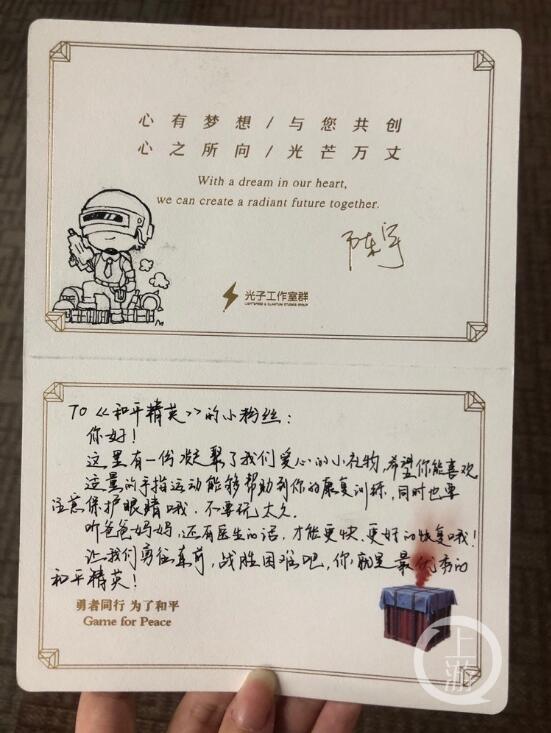 心有梦想/与您共创
心之所向/光芒万丈
With a dream in our heart,
we can create a radiant future together.
陈宇
光子工作室群
LIGHTSPEED & QUANTUM STUDIOS GROUP
To《和平精英》的小粉丝：
你好！
这里有一份凝聚了我们爱心的小礼物，希望你能喜欢
适量的手指运动能够帮助到你的康复训练，同时也要
注意保护眼睛哦，不要玩太久。
听爸爸妈妈，还有医生的话，才能更快、更好的恢复哦！
让我们勇往直前，战胜困难吧，你，就是最优秀的
和平精英！
勇者同行 为了和平
Game for Peace
上游